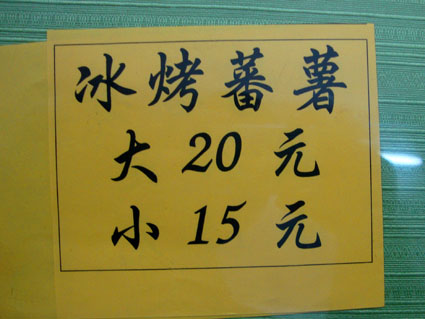 冰烤蕃薯
大 20 元
小 15 元